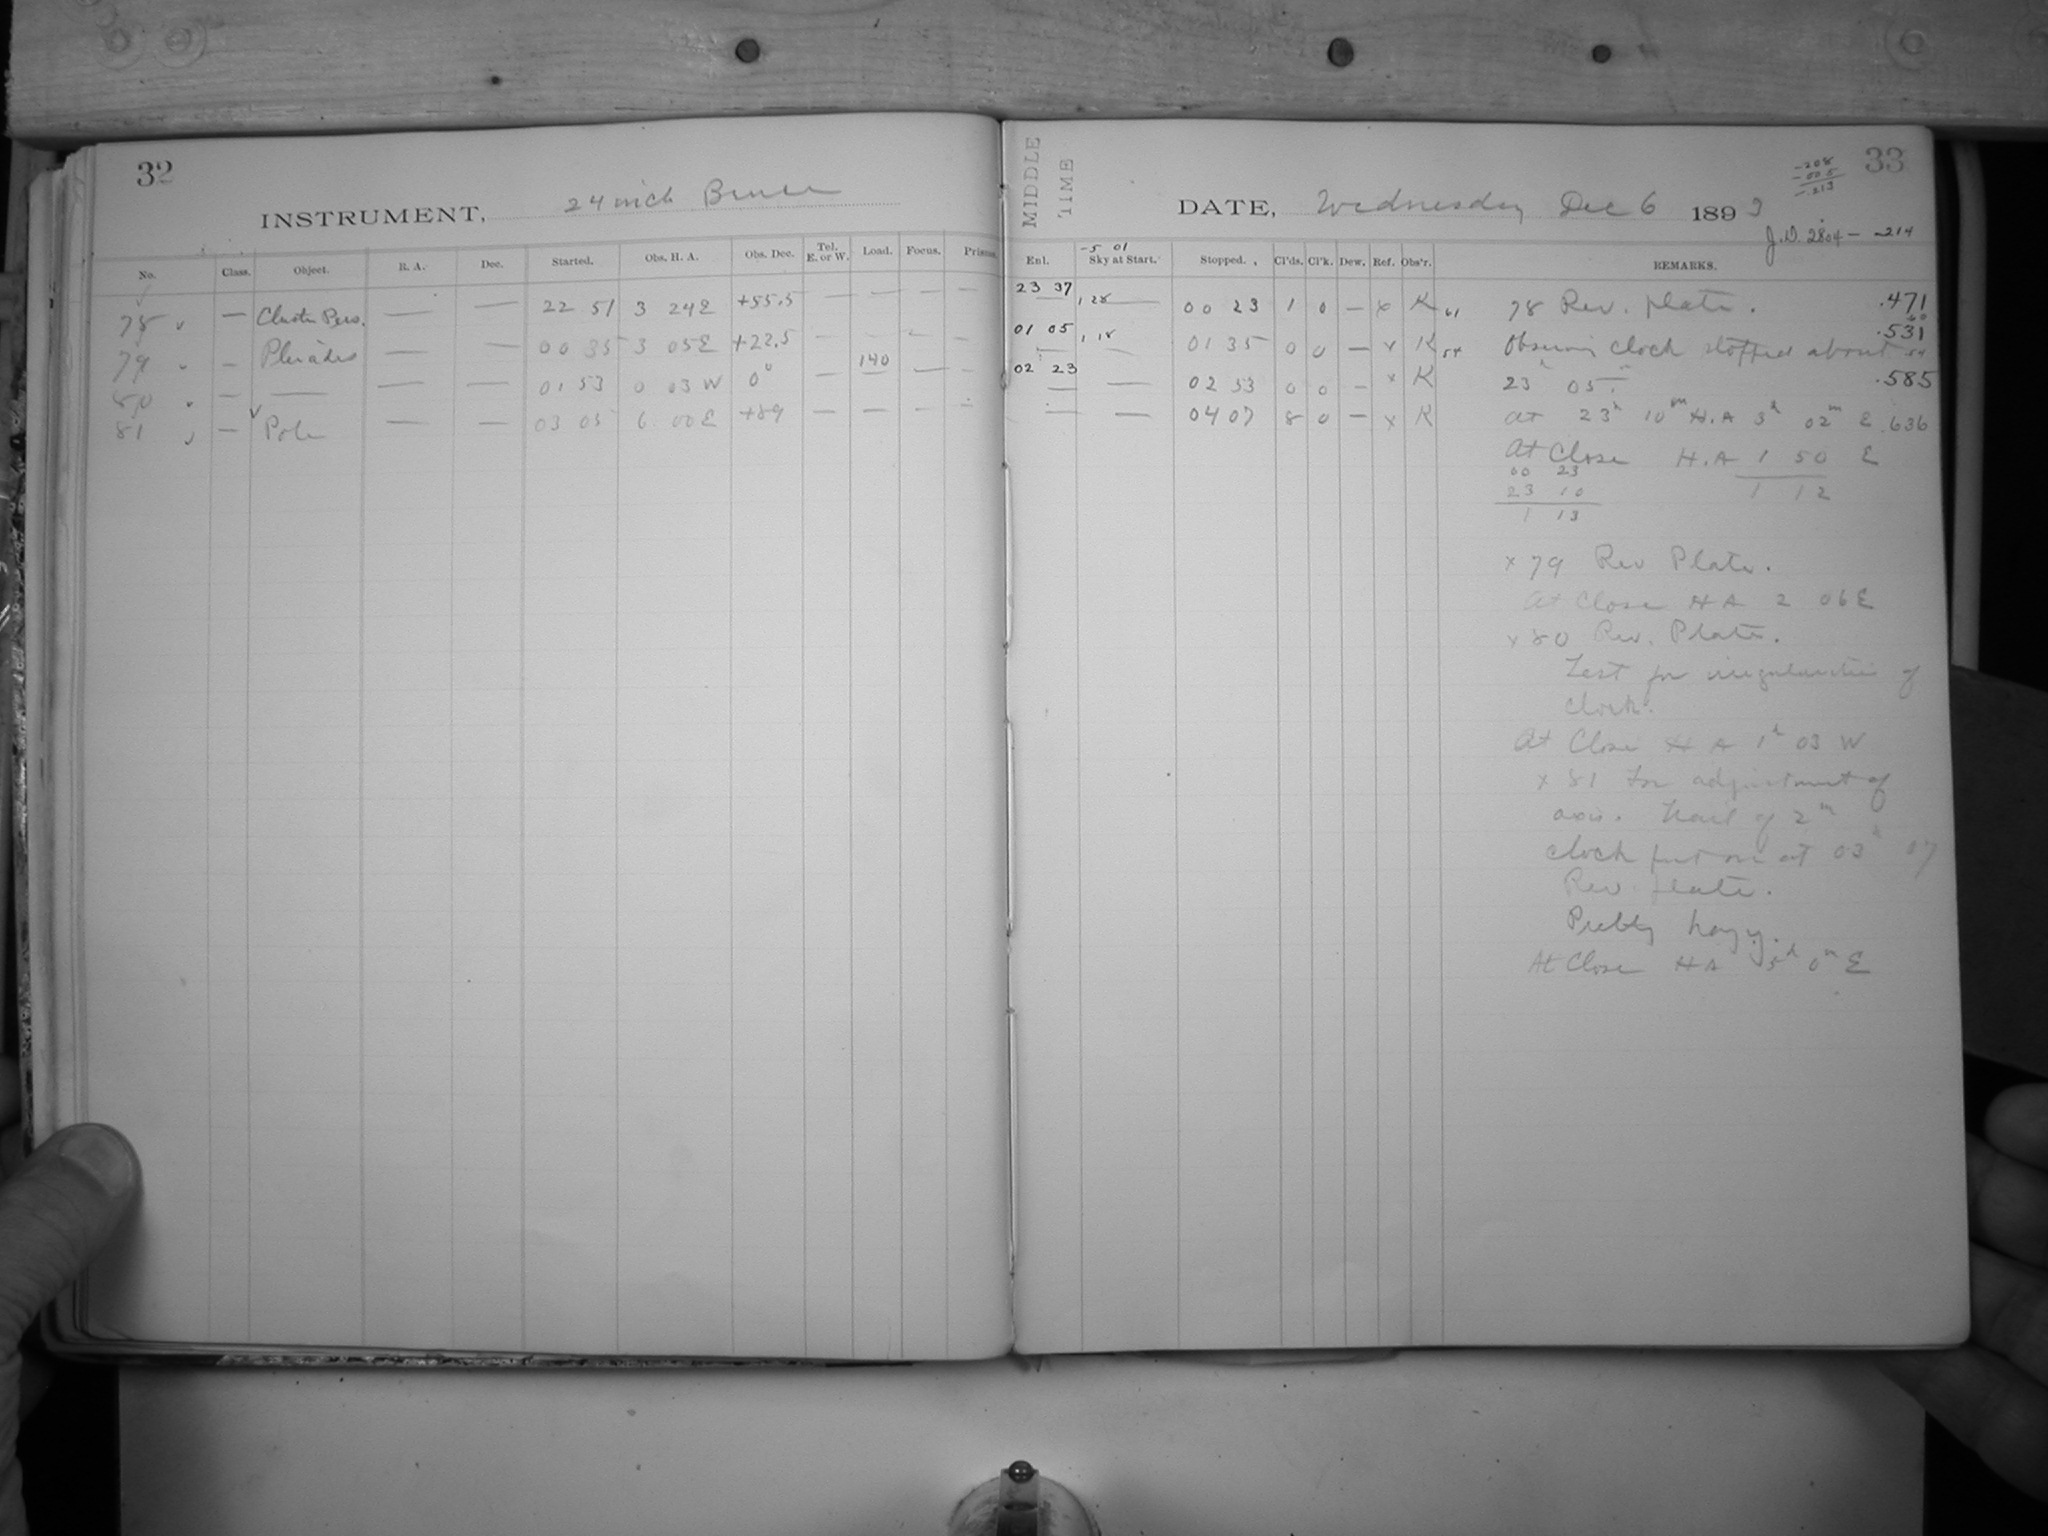 32
INSTRUMENT, 24 inch Bruce
No. Class. Object. R. A. Dec. Started. Obs. H. A. Obs. Dec. Tel. E. or W. Load. Focus. Prisms.
78 — Cluster Pers. — — 22 51 3 24 E +55.5 — — — —
79 — Pleiades — — 00 35 3 05 E +22.5 — — — —
80 — — — — 01 53 0 03 W 0° — 140 — —
81 — Pole — — 03 05 6 00 E +89 — — — —
MIDDLE TIME
33
-.208
-.005
-.213
DATE, Wednesday Dec 6 1893
J.D. 2804 — -.214
-5 01
Enl. Sky at Start. Stopped. Cl'ds. Cl'k. Dew. Ref. Obs'r. REMARKS.
23 37 1,28 — 00 23 1 0 — x K 61 78 Rev. plate. .471
60
01 05 1,18 — 01 35 0 0 — x K 54 Observing clock stopped about .531
54
02 23 — — 02 53 0 0 — x K 23h 05m .585
— — 04 07 8 0 — x K At 23h 10m H.A 3h 02m E .636
At Close H.A 1 50 E
00 23
23 10 1 12
1 13
x 79 Rev Plate.
At Close H A 2 06 E
x 80 Rev. Plate.
Test for irregularities of
clock.
At Close H A 1h 03 W
x 81 For adjustment of
axis. Trail of 2m
clock put on at 03h 07
Rev. plate.
Prebly hazy.
At Close H A 5h 0m E